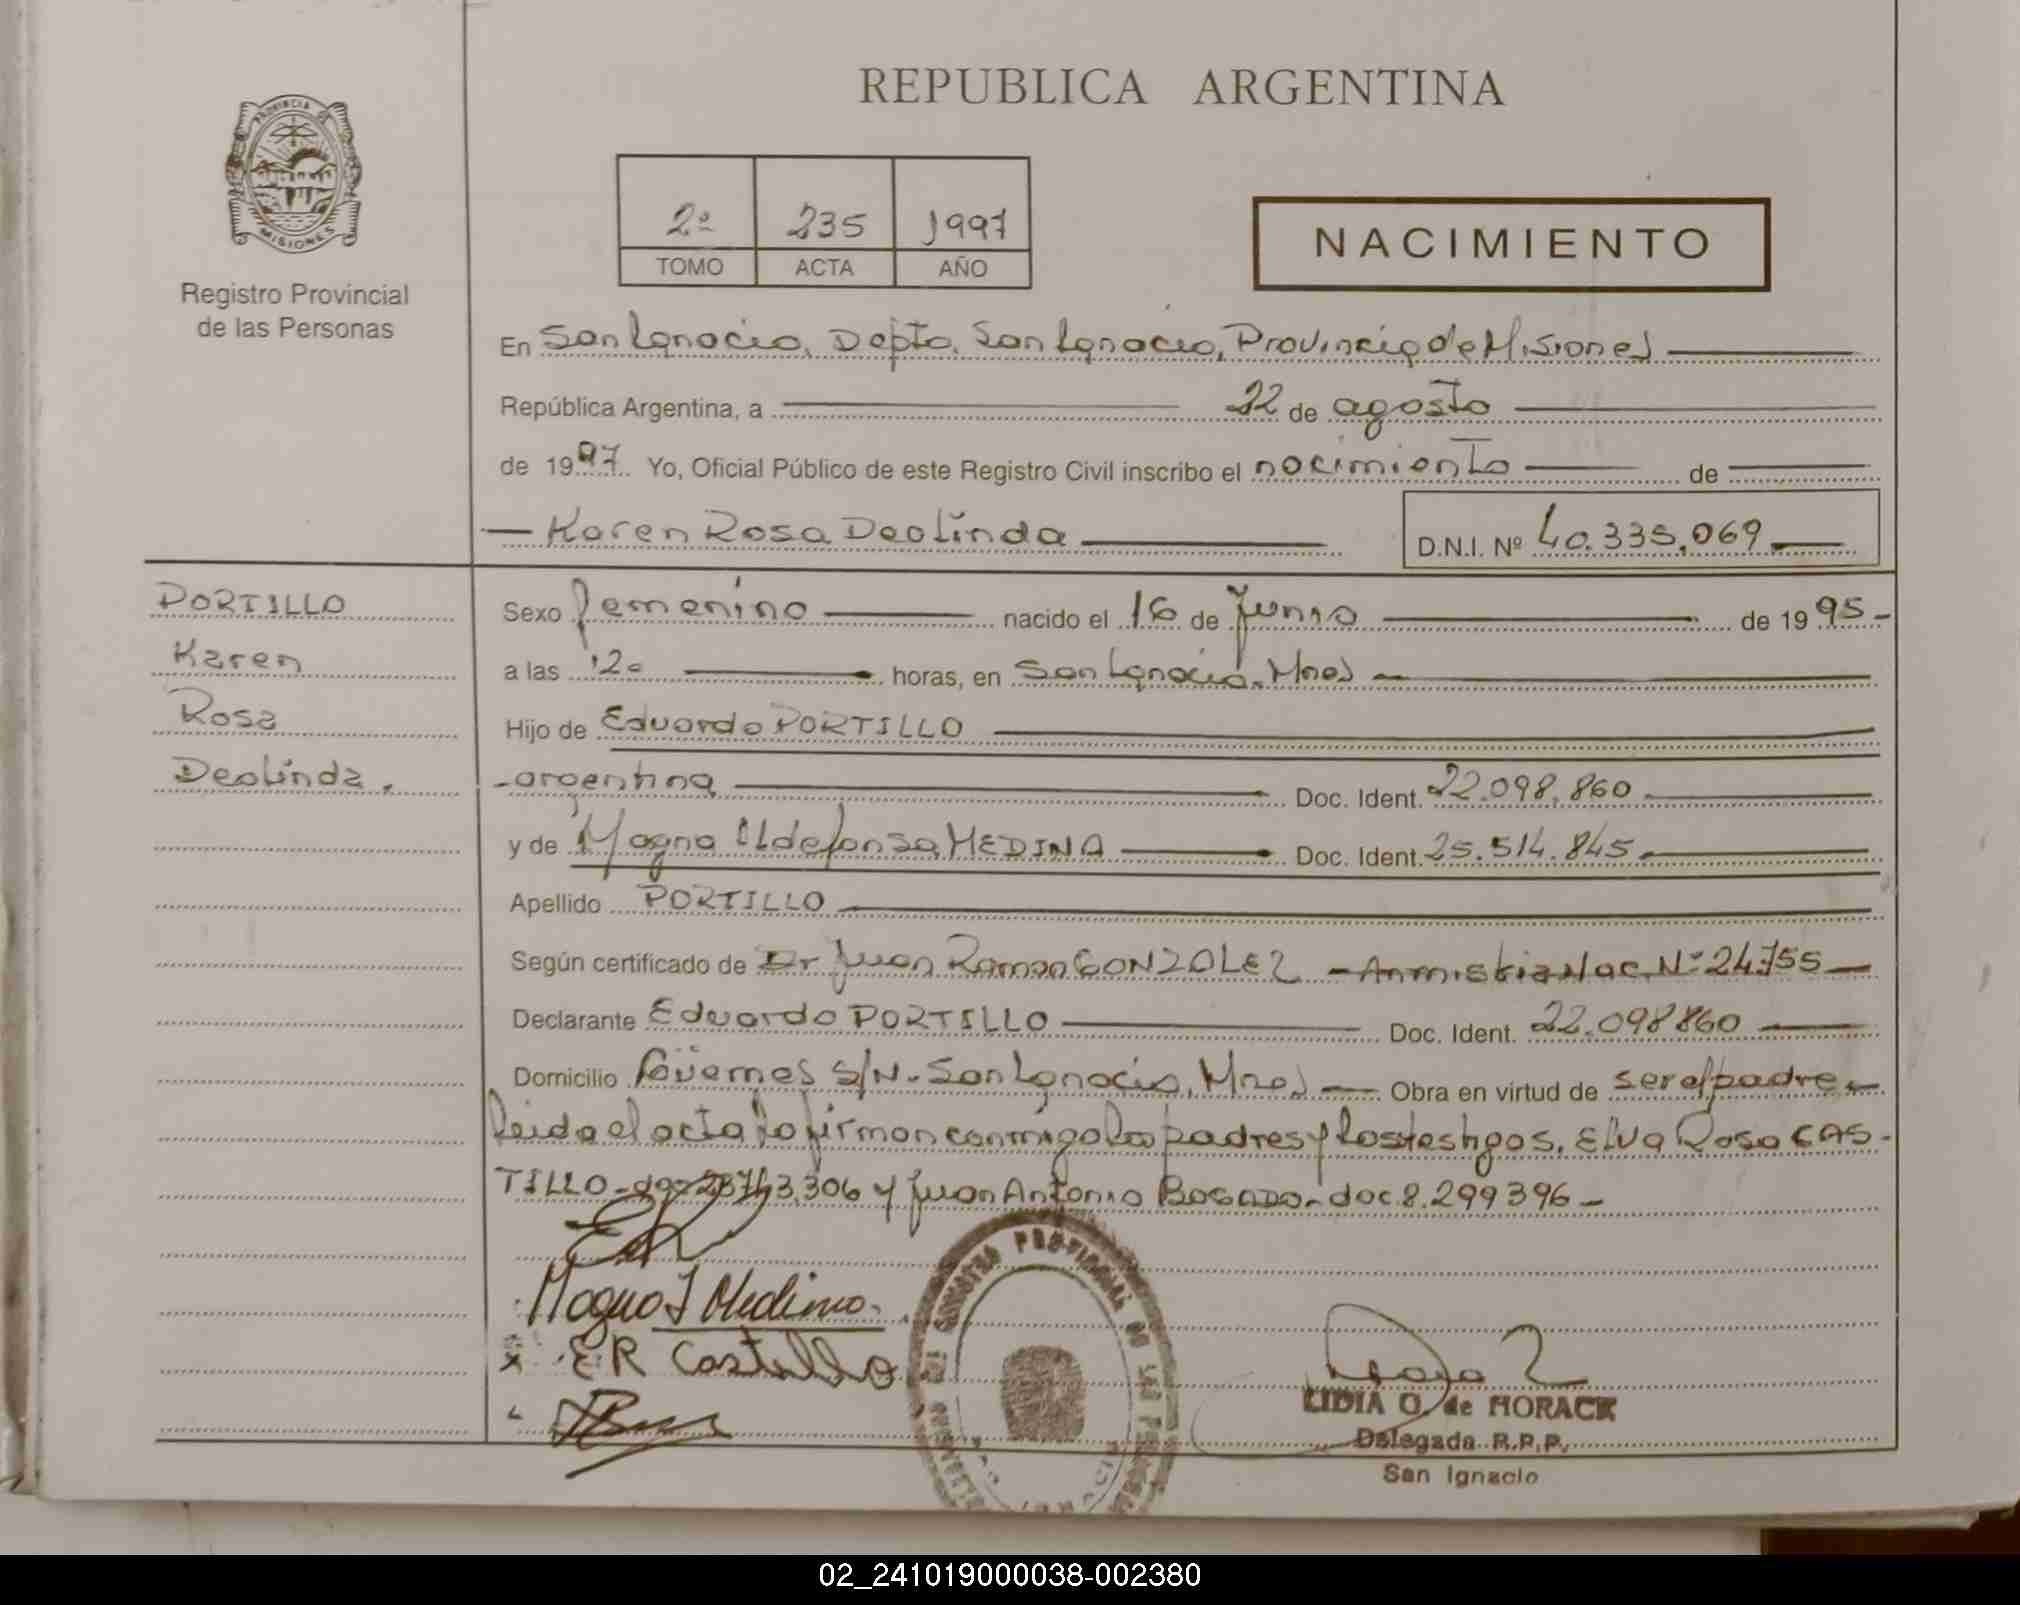 REPUBLICA ARGENTINA
PROVINCIA DE
MISIONES
Registro Provincial
de las Personas
2º 235 1997
TOMO ACTA AÑO
NACIMIENTO
En San Ignacio, Depto. San Ignacio, Provincia de Misiones
República Argentina, a 22 de agosto
de 1997 Yo, Oficial Público de este Registro Civil inscribo el nacimiento de
Karen Rosa Deolinda
D.N.I. Nº 40.335.069
PORTILLO
Karen
Rosa
Deolinda.
Sexo femenino nacido el 16 de Junio de 1995
a las 12 horas, en San Ignacio, Mnes
Hijo de Eduardo PORTILLO
argentina Doc. Ident. 22.098.860
y de Magna Ildefonsa MEDINA Doc. Ident. 25.514.845
Apellido PORTILLO
Según certificado de Dr Juan Ramon GONZALEZ - Amnistia Nac. Nº 24755
Declarante Eduardo PORTILLO Doc. Ident. 22.098860
Domicilio Güemes S/N. San Ignacio, Mnes Obra en virtud de ser el padre
Leida el acta la firman conmigo los padres y los testigos, Elva Rosa CAS-
TILLO y Juan Antonio doc. 8.299396
Magna I Medina
E.R Castillo
REGISTRO PROVINCIAL DE LAS PERSONAS
LIDIA O. de HORACK
Delegada R.P.P.
San Ignacio
02_241019000038-002380